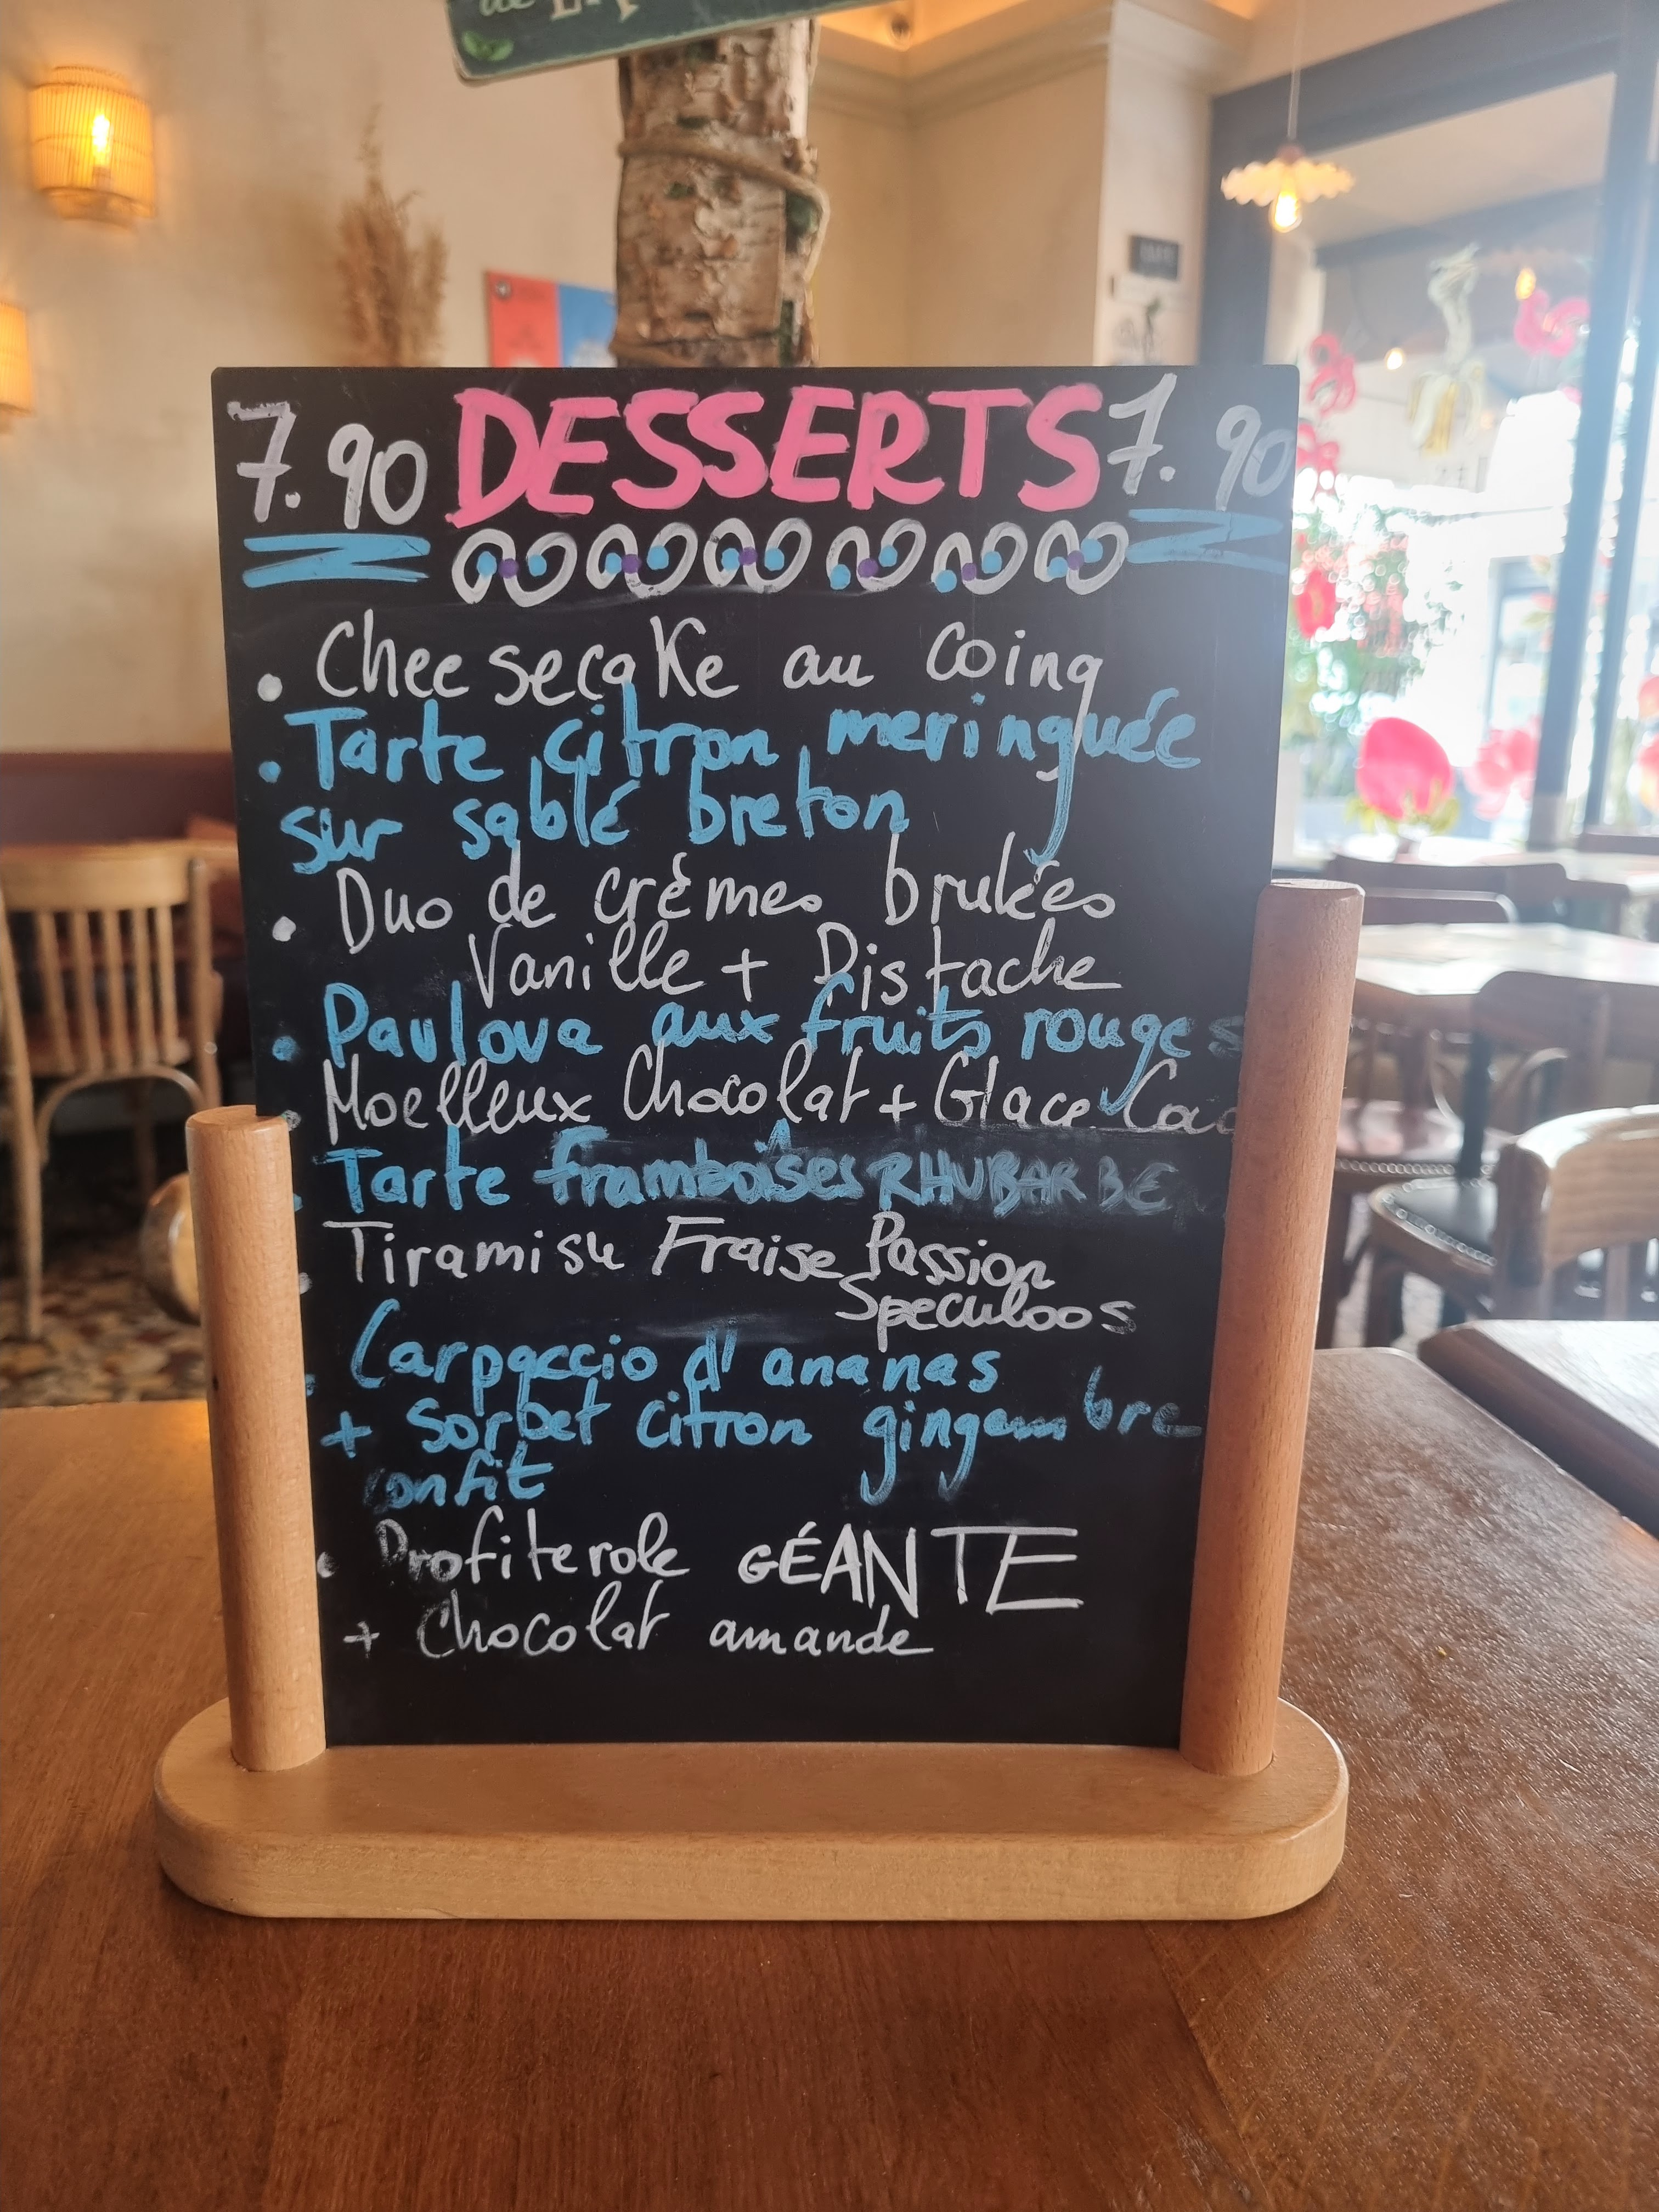 7.90 DESSERTS 7.90
• Cheesecake au Coing
• Tarte citron meringuée
sur sablé breton
• Duo de crèmes brulées
Vanille + Pistache
• Pavlova aux fruits rouges
• Moelleux Chocolat + Glace Coco
• Tarte framboises RHUBARBE
• Tiramisu Fraise Passion
Speculoos
• Carpaccio d'ananas
+ sorbet citron gingembre
confit
• Profiterole GÉANTE
+ Chocolat amande